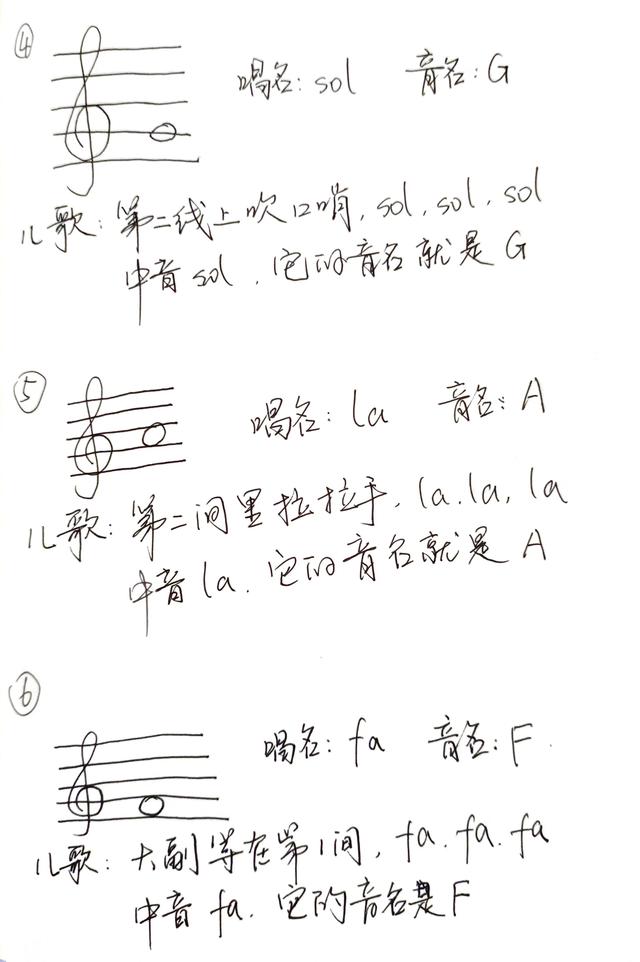 ④
唱名: sol 音名: G
儿歌: 第二线上吹口哨, sol, sol, sol
中音 sol, 它的音名就是 G
⑤
唱名: la 音名: A
儿歌: 第二间里拉拉手, la. la, la
中音 la. 它的音名就是 A
⑥
唱名: fa 音名: F.
儿歌: 大副等在第1间, fa. fa. fa
中音 fa. 它的音名是 F